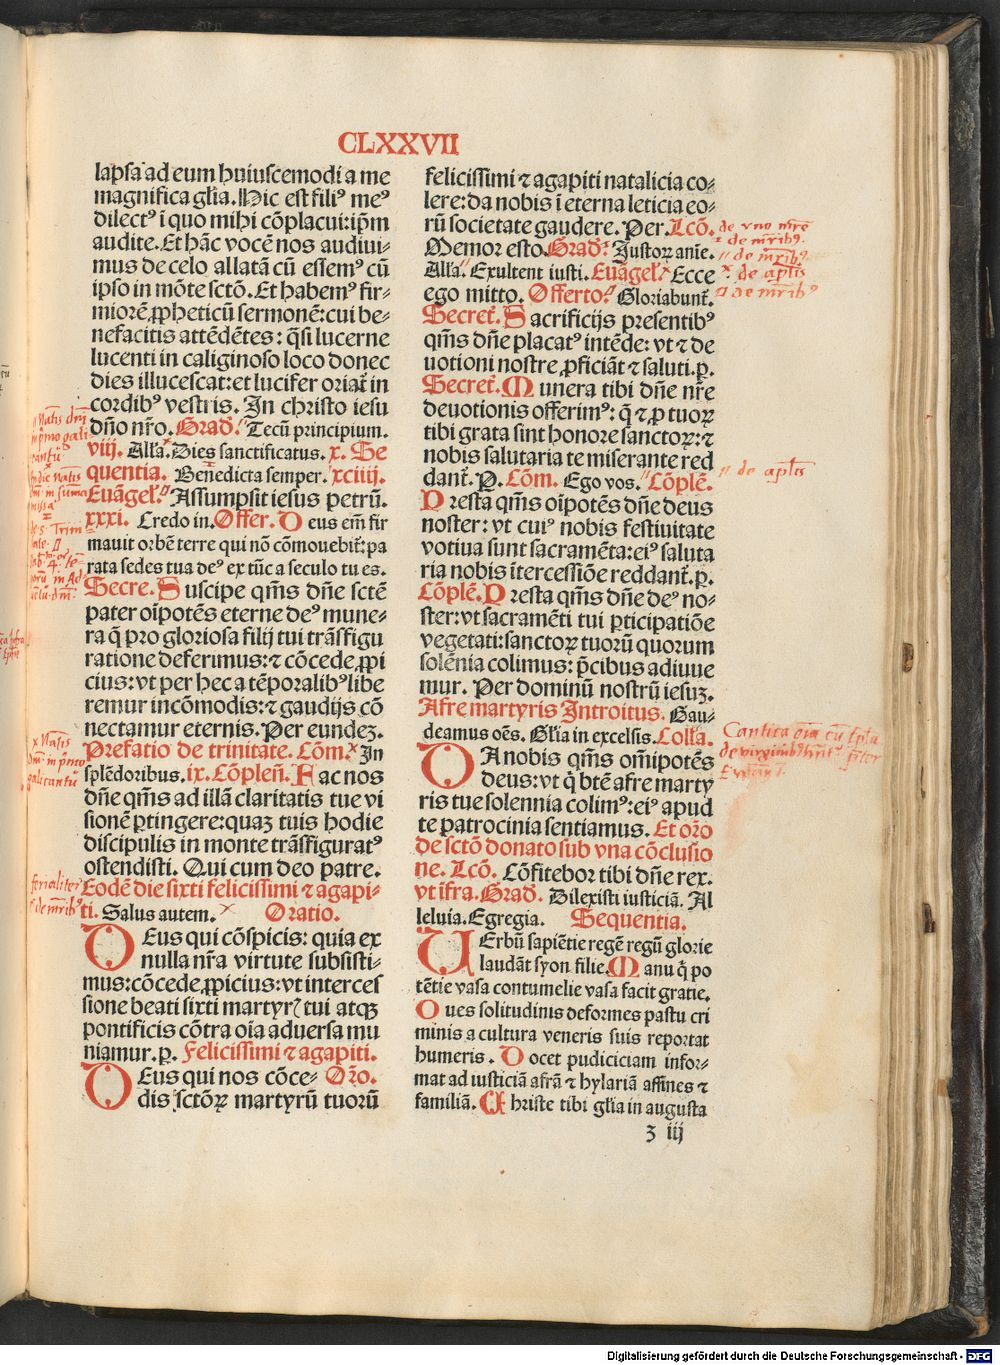 CLXXVII
lapsa ad eum huiuscemodi a me
magnifica gl̄ia. Hic est filiꝰ meꝰ
dilectꝰ ī quo mihi cōplacui: ip̄m
audite. Et hāc vocē nos audiui-
mus de celo allatā cū essemꝰ cū
ipso in mōte sctō. Et habemꝰ fir-
miorē ꝓpheticū sermonē: cui be-
nefacitis attēdētes: q̄si lucerne
lucenti in caliginoso loco donec
dies illucescat: et lucifer oriat̄ in
cordibꝰ vestris. In christo iesu
dn̄o nr̄o. Grad̄. Tecū principium.
viij. Alľa. Dies sanctificatus. x. Se
quentia. Benedicta semper. xciiij.
Euāgel̄. Assumpsit iesus petrū.
xxxi. Credo in. Offer. D eus em̄ fir
mauit orbē terre qui nō cōmouebit̄: pa
rata sedes tua deꝰ ex tūc a seculo tu es.
Secre. S uscipe qm̄s dn̄e sctē
pater oīpotēs eterne deꝰ mune-
ra q̄ pro gloriosa filij tui trāsfigu
ratione deferimus: ⁊ cōcede ꝓpi
cius: vt per hec a tēporalibꝰ libe
remur incōmodis: ⁊ gaudijs cō
nectamur eternis. Per eundeȝ.
Prefatio de trinitate. Cōm̄. In
splēdoribus. ix. Cōplen̄. F ac nos
dn̄e qm̄s ad illā claritatis tue vi
sionē ꝑtingere: quaȝ tuis hodie
discipulis in monte trāsfiguratꝰ
ostendisti. Qui cum deo patre.
Eodē die sixti felicissimi ⁊ agapi-
ti. Salus autem. Oratio.
D Eus qui cōspicis: quia ex
nulla nr̄a virtute subsisti-
mus: cōcede ꝓpicius: vt interces
sione beati sixti martyrꝭ tui atqꝫ
pontificis cōtra oīa aduersa mu
niamur. ꝑ. Felicissimi ⁊ agapiti.
D Eus qui nos cōce- Or̄o.
dis sctōꝝ martyrū tuorū
felicissimi ⁊ agapiti natalicia co-
lere: da nobis ī eterna leticia eo-
rū societate gaudere. Per. Lcō.
Memor esto. Grad̄. Justoꝝ anīe.
Alľa. Exultent iusti. Euāgel̄. Ecce
ego mitto. Offerto. Gloriabunt̄.
Secret̄. S acrificijs presentibꝰ
qm̄s dn̄e placatꝰ intēde: vt ⁊ de
uotioni nostre ꝓficiāt ⁊ saluti. ꝑ.
Secret̄. M unera tibi dn̄e nr̄e
deuotionis offerimꝰ: q̄ ⁊ ꝓ tuoꝝ
tibi grata sint honore sanctoꝝ: ⁊
nobis salutaria te miserante red
dant̄. P. Cōm. Ego vos. Cōplē.
P resta qm̄s oīpotēs dn̄e deus
noster: vt cuiꝰ nobis festiuitate
votiua sunt sacramēta: eiꝰ saluta
ria nobis ītercessiōe reddant̄. ꝑ.
Cōplē. P resta qm̄s dn̄e deꝰ no-
ster: vt sacramēti tui ꝑticipatiōe
vegetati: sanctoꝝ tuorū quorum
solēnia colimus: p̄cibus adiuue
mur. Per dominū nostrū iesuȝ.
Afre martyris Introitus. Gau-
deamus oēs. Gl̄ia in excelsis. Colľa.
D A nobis qm̄s om̄ipotēs
deus: vt q̄ btē afre marty
ris tue solennia colimꝰ: eiꝰ apud
te patrocinia sentiamus. Et or̄o
de sctō donato sub vna cōclusio
ne. Lcō. Cōfitebor tibi dn̄e rex.
vt ifra. Grad̄. Dilexisti iusticiā. Al
leluia. Egregia. Sequentia.
V Erbū sapiētie regē regū glorie
laudāt syon filie. M anu q̄ po
tētie vasa contumelie vasa facit gratie.
O ues solitudinis deformes pastu cri
minis a cultura veneris suis reportat
humeris. D ocet pudiciciam infor-
mat ad iusticiā afrā ⁊ hylariā affines ⁊
familiā. Ch riste tibi gl̄ia in augusta
z iij
de vno mr̄e
de mr̄ibꝰ
de mr̄ibꝰ
de apl̄is
de mr̄ibꝰ
de apl̄is
x Natis
dm̄ in pͥmo
galicantū
ferialiter
de mr̄ibꝰ
Digitalisierung gefördert durch die Deutsche Forschungsgemeinschaft - DFG